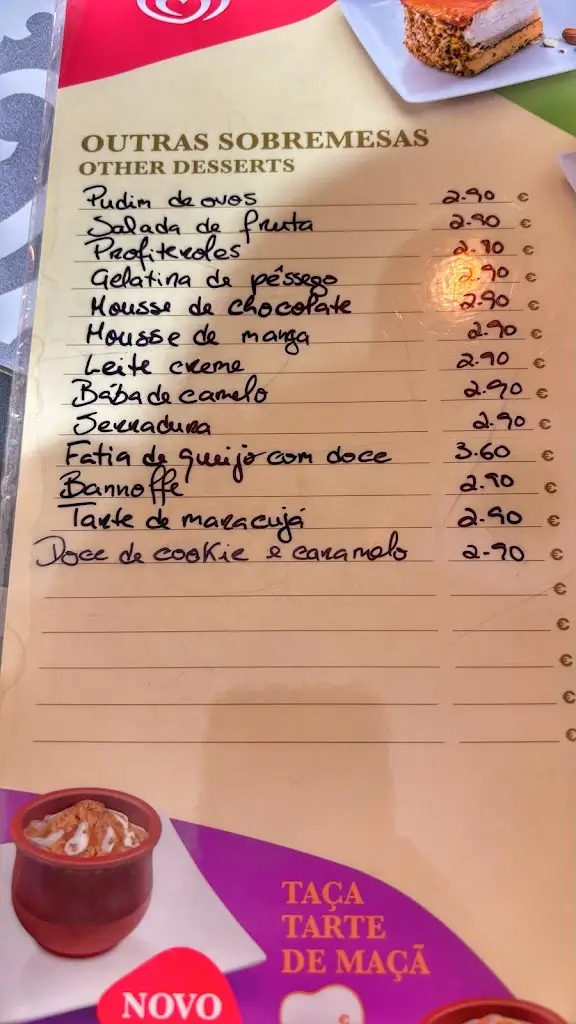 OUTRAS SOBREMESAS
OTHER DESSERTS
Pudim de ovos 2.90 €
Salada de fruta 2.90 €
Profiteroles 2.90 €
Gelatina de pêssego 2.90 €
Mousse de chocolate 2.90 €
Mousse de manga 2.90 €
Leite creme 2.90 €
Bába de camelo 2.90 €
Serradura 2.90 €
Fatia de queijo com doce 3.60 €
Bannoffe 2.90 €
Tarte de maracujá 2.90 €
Doce de cookie e caramelo 2.90 €
€
€
€
€
€
TAÇA
TARTE
DE MAÇÃ
NOVO
€